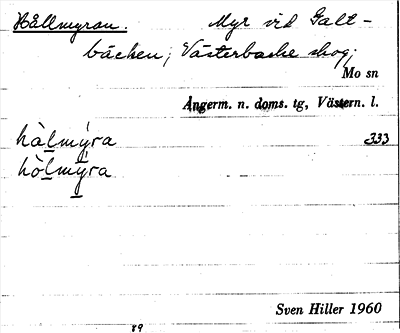 Hållmyran. Myr vid Galt-
bäcken; Västerbacke skog;
Mo sn
Ångerm. n. doms. tg, Västern. l.
hàlmýra 333
hòlmýra
Sven Hiller 1960
89